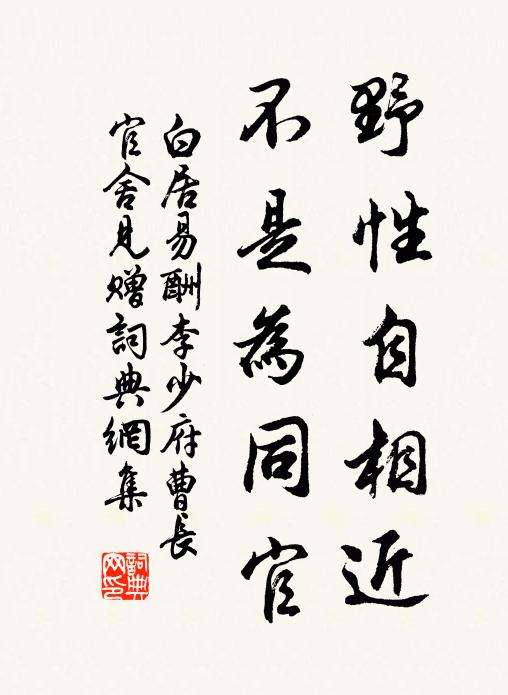 野性自相近
不是為同官
白居易酬李少府曹長
官舍見贈詞典網集
詞典
网印